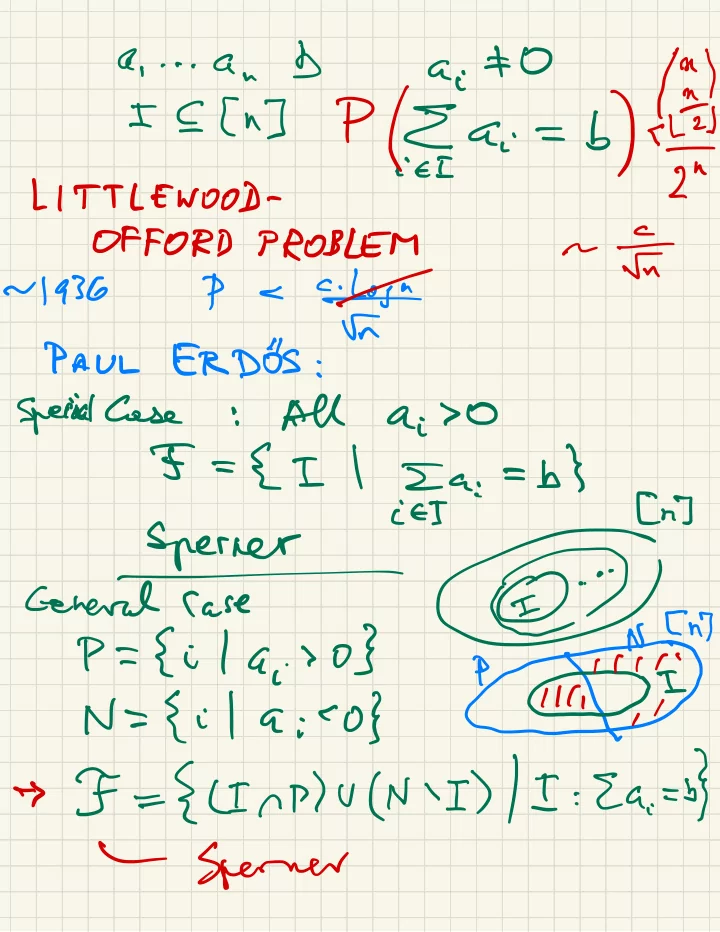 a₁ ... aₙ b aᵢ ≠ 0
I ⊆ [n] P(∑_{i∈I} aᵢ = b) ≤ (n choose ⌊n/2⌋) / 2ⁿ
LITTLEWOOD-
OFFORD PROBLEM ~ c/√n
~1936 P < c·log n / √n
PAUL ERDŐS:
Special Case : All aᵢ > 0
F = { I | ∑_{i∈I} aᵢ = b }
[n]
Sperner
I ...
General Case
P = { i | aᵢ > 0 }
P N [n] I
N = { i | aᵢ < 0 }
→ F = { (I ∩ P) ∪ (N \ I) | I : ∑aᵢ = b }
Sperner